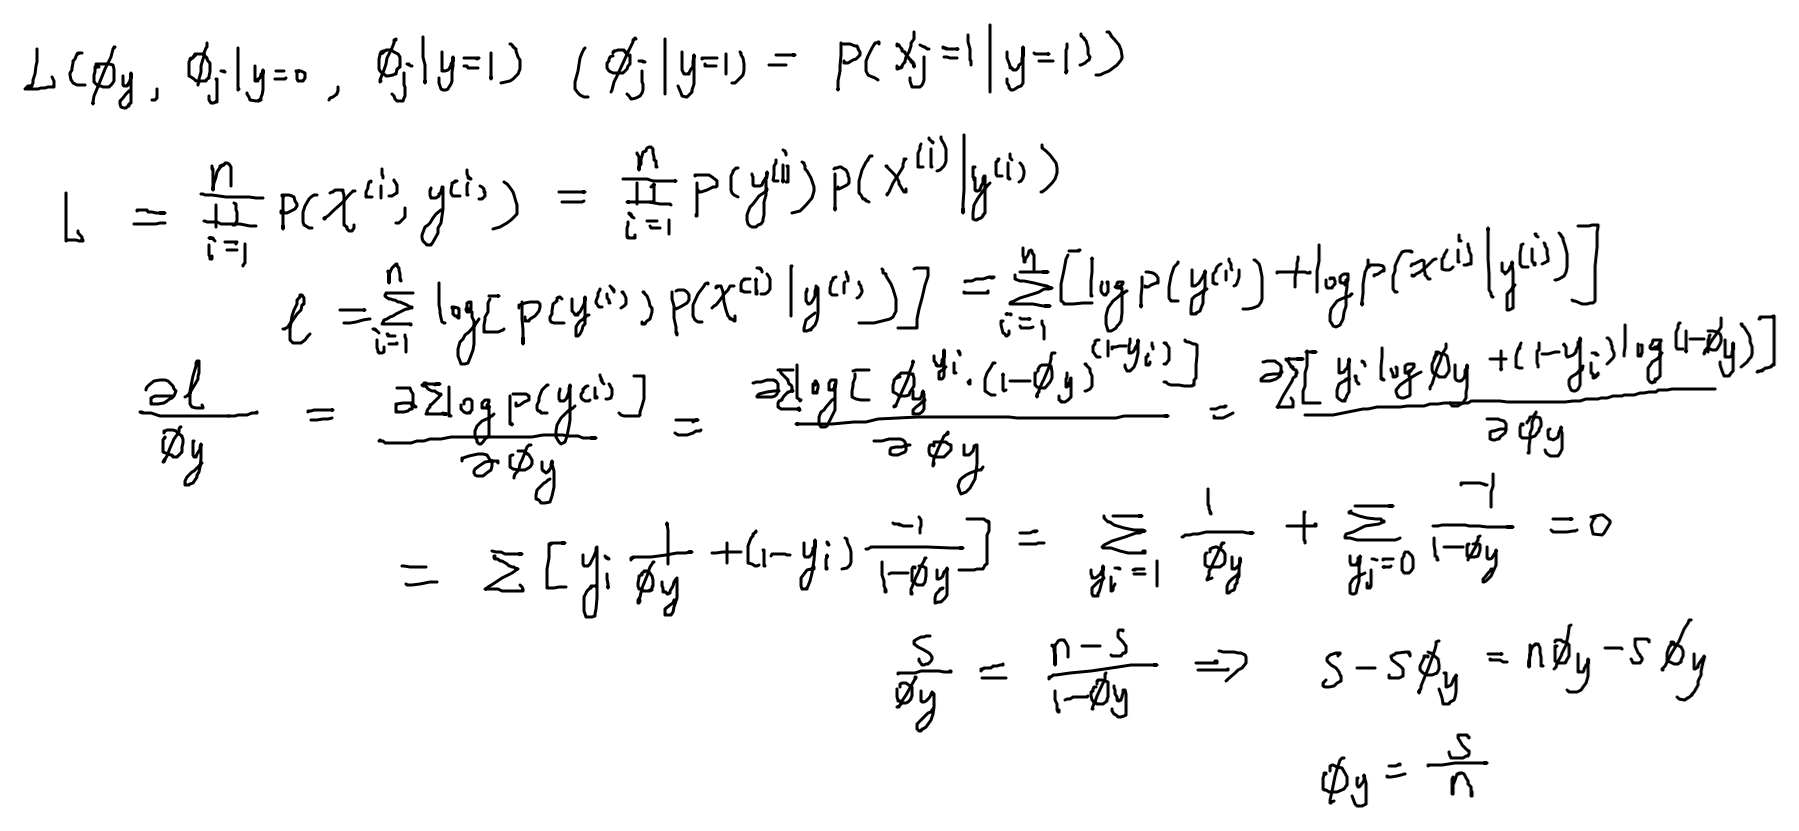 L(ϕy, ϕj|y=0, ϕj|y=1) (ϕj|y=1) = P(xj=1|y=1))
L = ∏_{i=1}^{n} P(x^(i), y^(i)) = ∏_{i=1}^{n} P(y^(i)) P(x^(i)|y^(i))
ℓ = ∑_{i=1}^{n} log[P(y^(i)) P(x^(i)|y^(i))] = ∑_{i=1}^{n} [log P(y^(i)) + log P(x^(i)|y^(i))]
∂ℓ/ϕy = ∂∑log P(y^(i)]/∂ϕy = ∂∑log[ϕy^{yi}·(1-ϕy)^{(1-yi)}]/∂ϕy = ∂∑[yi log ϕy + (1-yi) log(1-ϕy)]/∂ϕy
= ∑[yi 1/ϕy + (1-yi) -1/(1-ϕy)] = ∑_{yi=1} 1/ϕy + ∑_{yi=0} -1/(1-ϕy) = 0
s/ϕy = (n-s)/(1-ϕy) ⇒ s-sϕy = nϕy-sϕy
ϕy = s/n